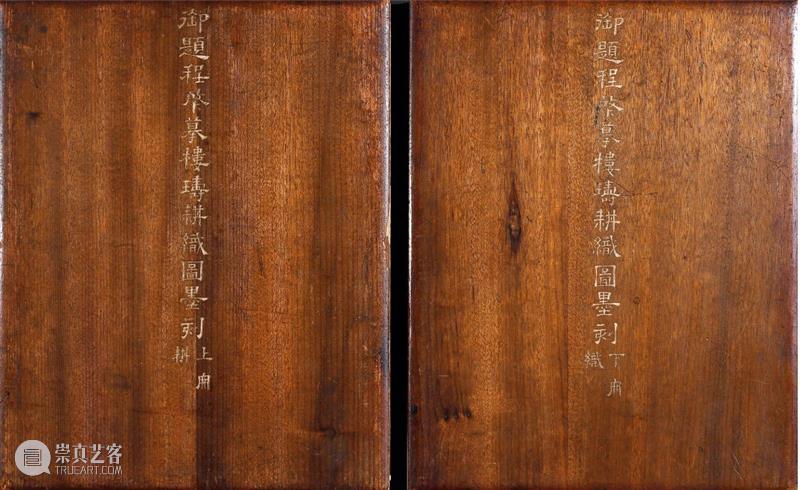 御題程棨摹樓璹耕織圖墨刻
上冊
耕
御題程棨摹樓璹耕織圖墨刻
下冊
織
崇真艺客
TRUEART.COM